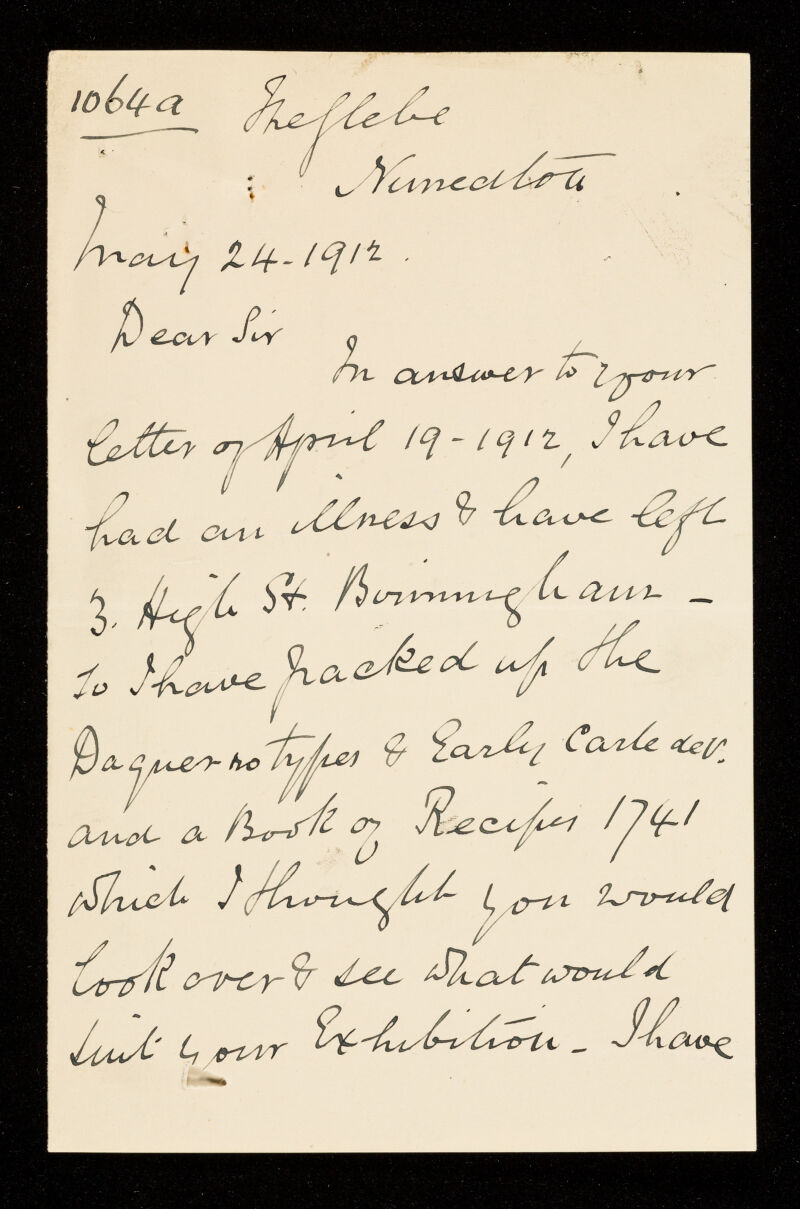 1064a The Glebe
Nuneaton
May 24-1912.
Dear Sir
In answer to your
letter of April 19-1912, I have
had an illness & have left
3. High St. Birmingham -
so I have packed up the
Daguerrotypes & Early Carte de V.
and a Book of Recipes 1741
which I thought you would
look over & see what would
suit your Exhibition - I have